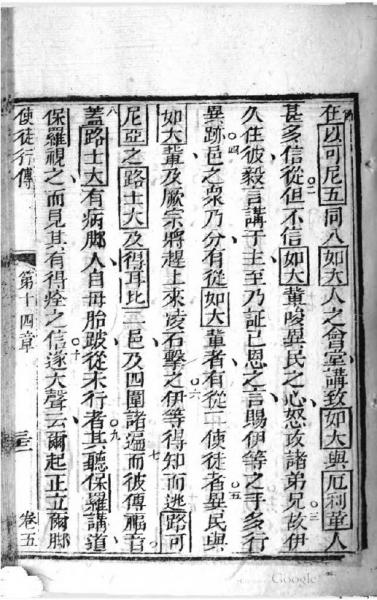 在以可尼五同入如大人之會堂講致如大與厄利革人
甚多信從但不信如大輩唆異民之心怒攻諸弟兄故伊
久住彼毅言講于主至乃証己恩之言賜伊等之手多行
異跡邑之衆乃分有從如大輩者有從使徒者異民與
如大輩及厥宗將趕上來凌石擊之伊等得知而逃路可
尼亞之路士大及得耳比二邑及四圍諸邊而彼傳福音
蓋路士大有病脚人自母胎跛從未行者其聽保羅講道
保羅視之而見其有得痊之信遂大聲云爾起正立爾脚
使徒行傳 第十四章 卷五
Google